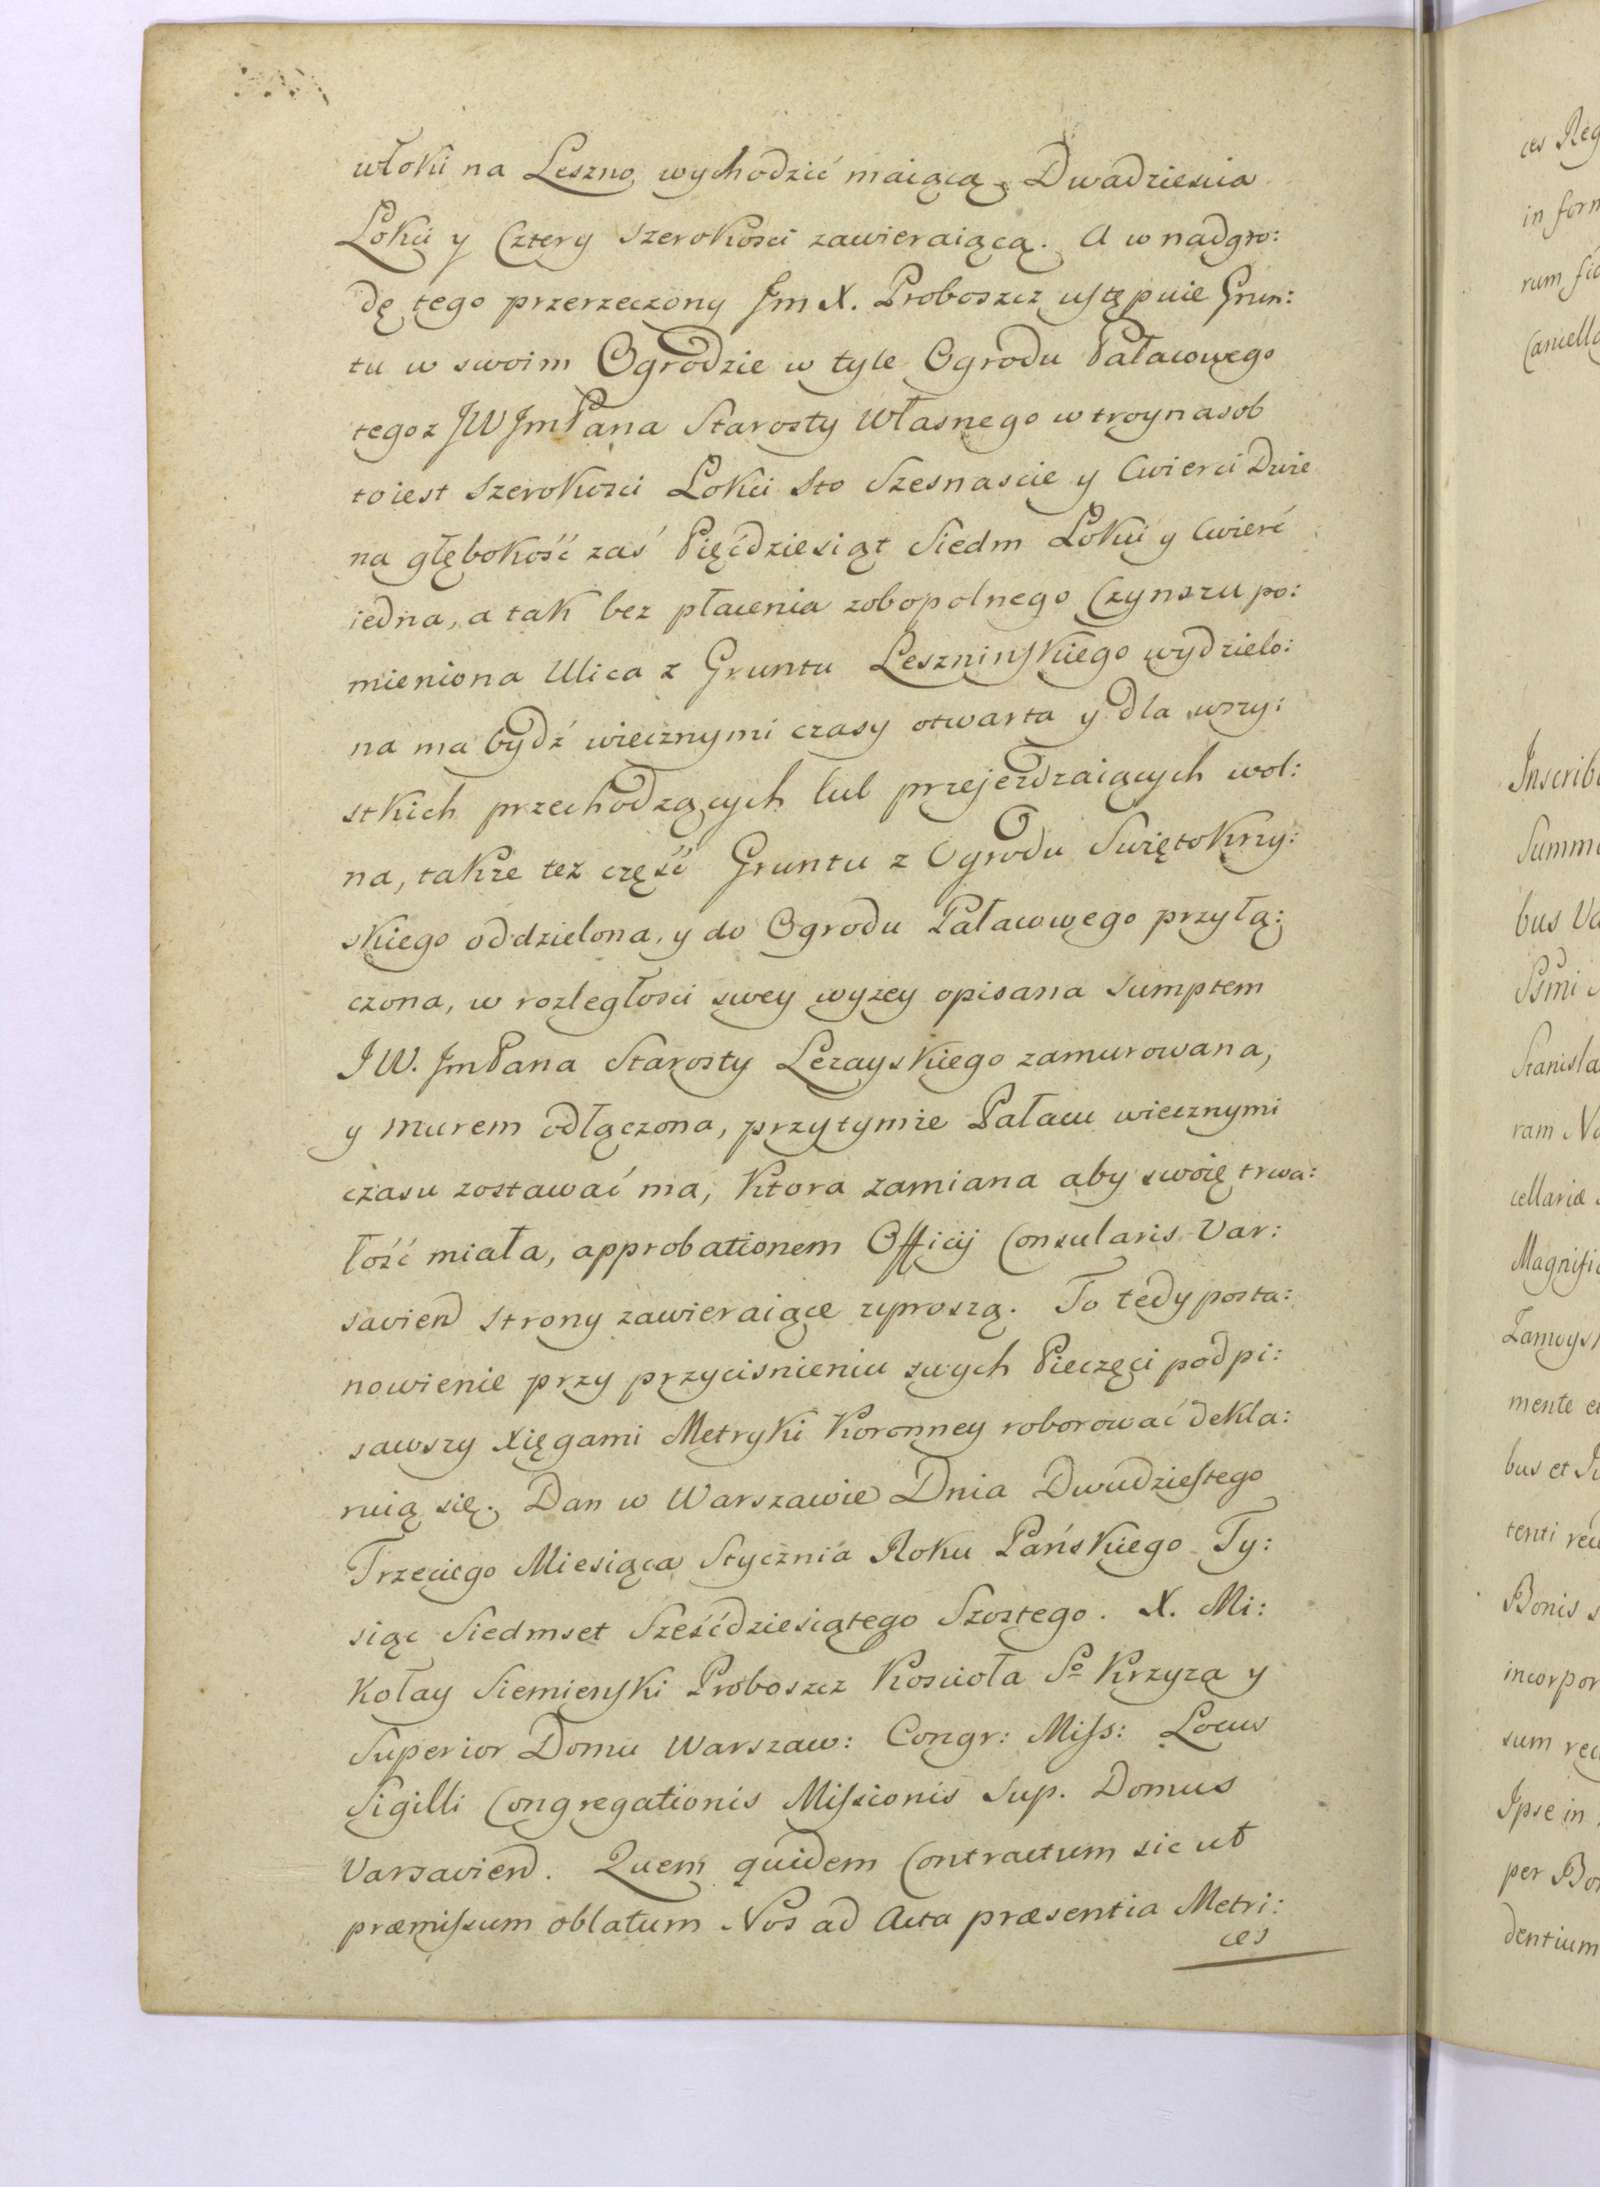 włoki na Leszno wychodzić maiącą, Dwadziescia
Lokci y Cztery szerokosci zawieraiącą. A w nadgro:
dę tego przerzeczony Jm X. Proboszcz ustępuie Grun:
tu w swoim Ogrodzie w tyle Ogrodu Pałacowego
tegoz JW JmPana Starosty Własnego w troynasob
toiest Szerokosci Lokci Sto Szesnascie y Cwierci Dwie
na głębokość zaś Pięćdziesiąt Siedm Lokci y Cwierć
iedna, a tak bez płacenia zobopolnego Czynszu po:
mieniona Ulica z Gruntu Leszninskiego wydzielo:
na ma bydź wiecznymi czasy otwarta y dla wszy:
stkich przechodzących lub przejezdzaiących wol:
na, takze tez część Gruntu z Ogrodu Swiętokrzy:
skiego oddzielona, y do Ogrodu Pałacowego przyłą:
czona, w rozległosci swey wyzey opisana sumptem
JW. JmPana Starosty Lezayskiego zamurowana,
y murem odłączona, przytymze Pałacu wiecznymi
czasu zostawać ma, Ktora zamiana aby swoię trwa:
łość miała, approbationem Officij Consularis Var:
savien strony zawieraiące upraszą. To tedy posta:
nowienie przy przycisnieniu swych Pieczęci podpi:
sawszy Xięgami Metryki Koronney roborować dekla:
ruią się. Dan w Warszawie Dnia Dwudziestego
Trzeciego Miesiąca Stycznia Roku Pańskiego Ty:
siąc Siedmset Sześćdziesiątego Szostego. X. Mi:
kołay Siemieński Proboszcz Kosciola So Krzyza y
Superior Domu Warszaw: Congr: Miss: Locus
Sigilli Congregationis Missionis Sup. Domus
Varsavien. Quem quidem Contractum sic ut
præmissum oblatum Nos ad Acta præsentia Metri:
ces
ces Reg
in form
rum
Inscrib
Summ
bus Va
Stanisla
ram No
cellariæ
Magnifi
Zamoys
mente e
bus et Ju
tenti rec
Bonis s
incorpor
sum rec
Ipse in
per Bo
dentium